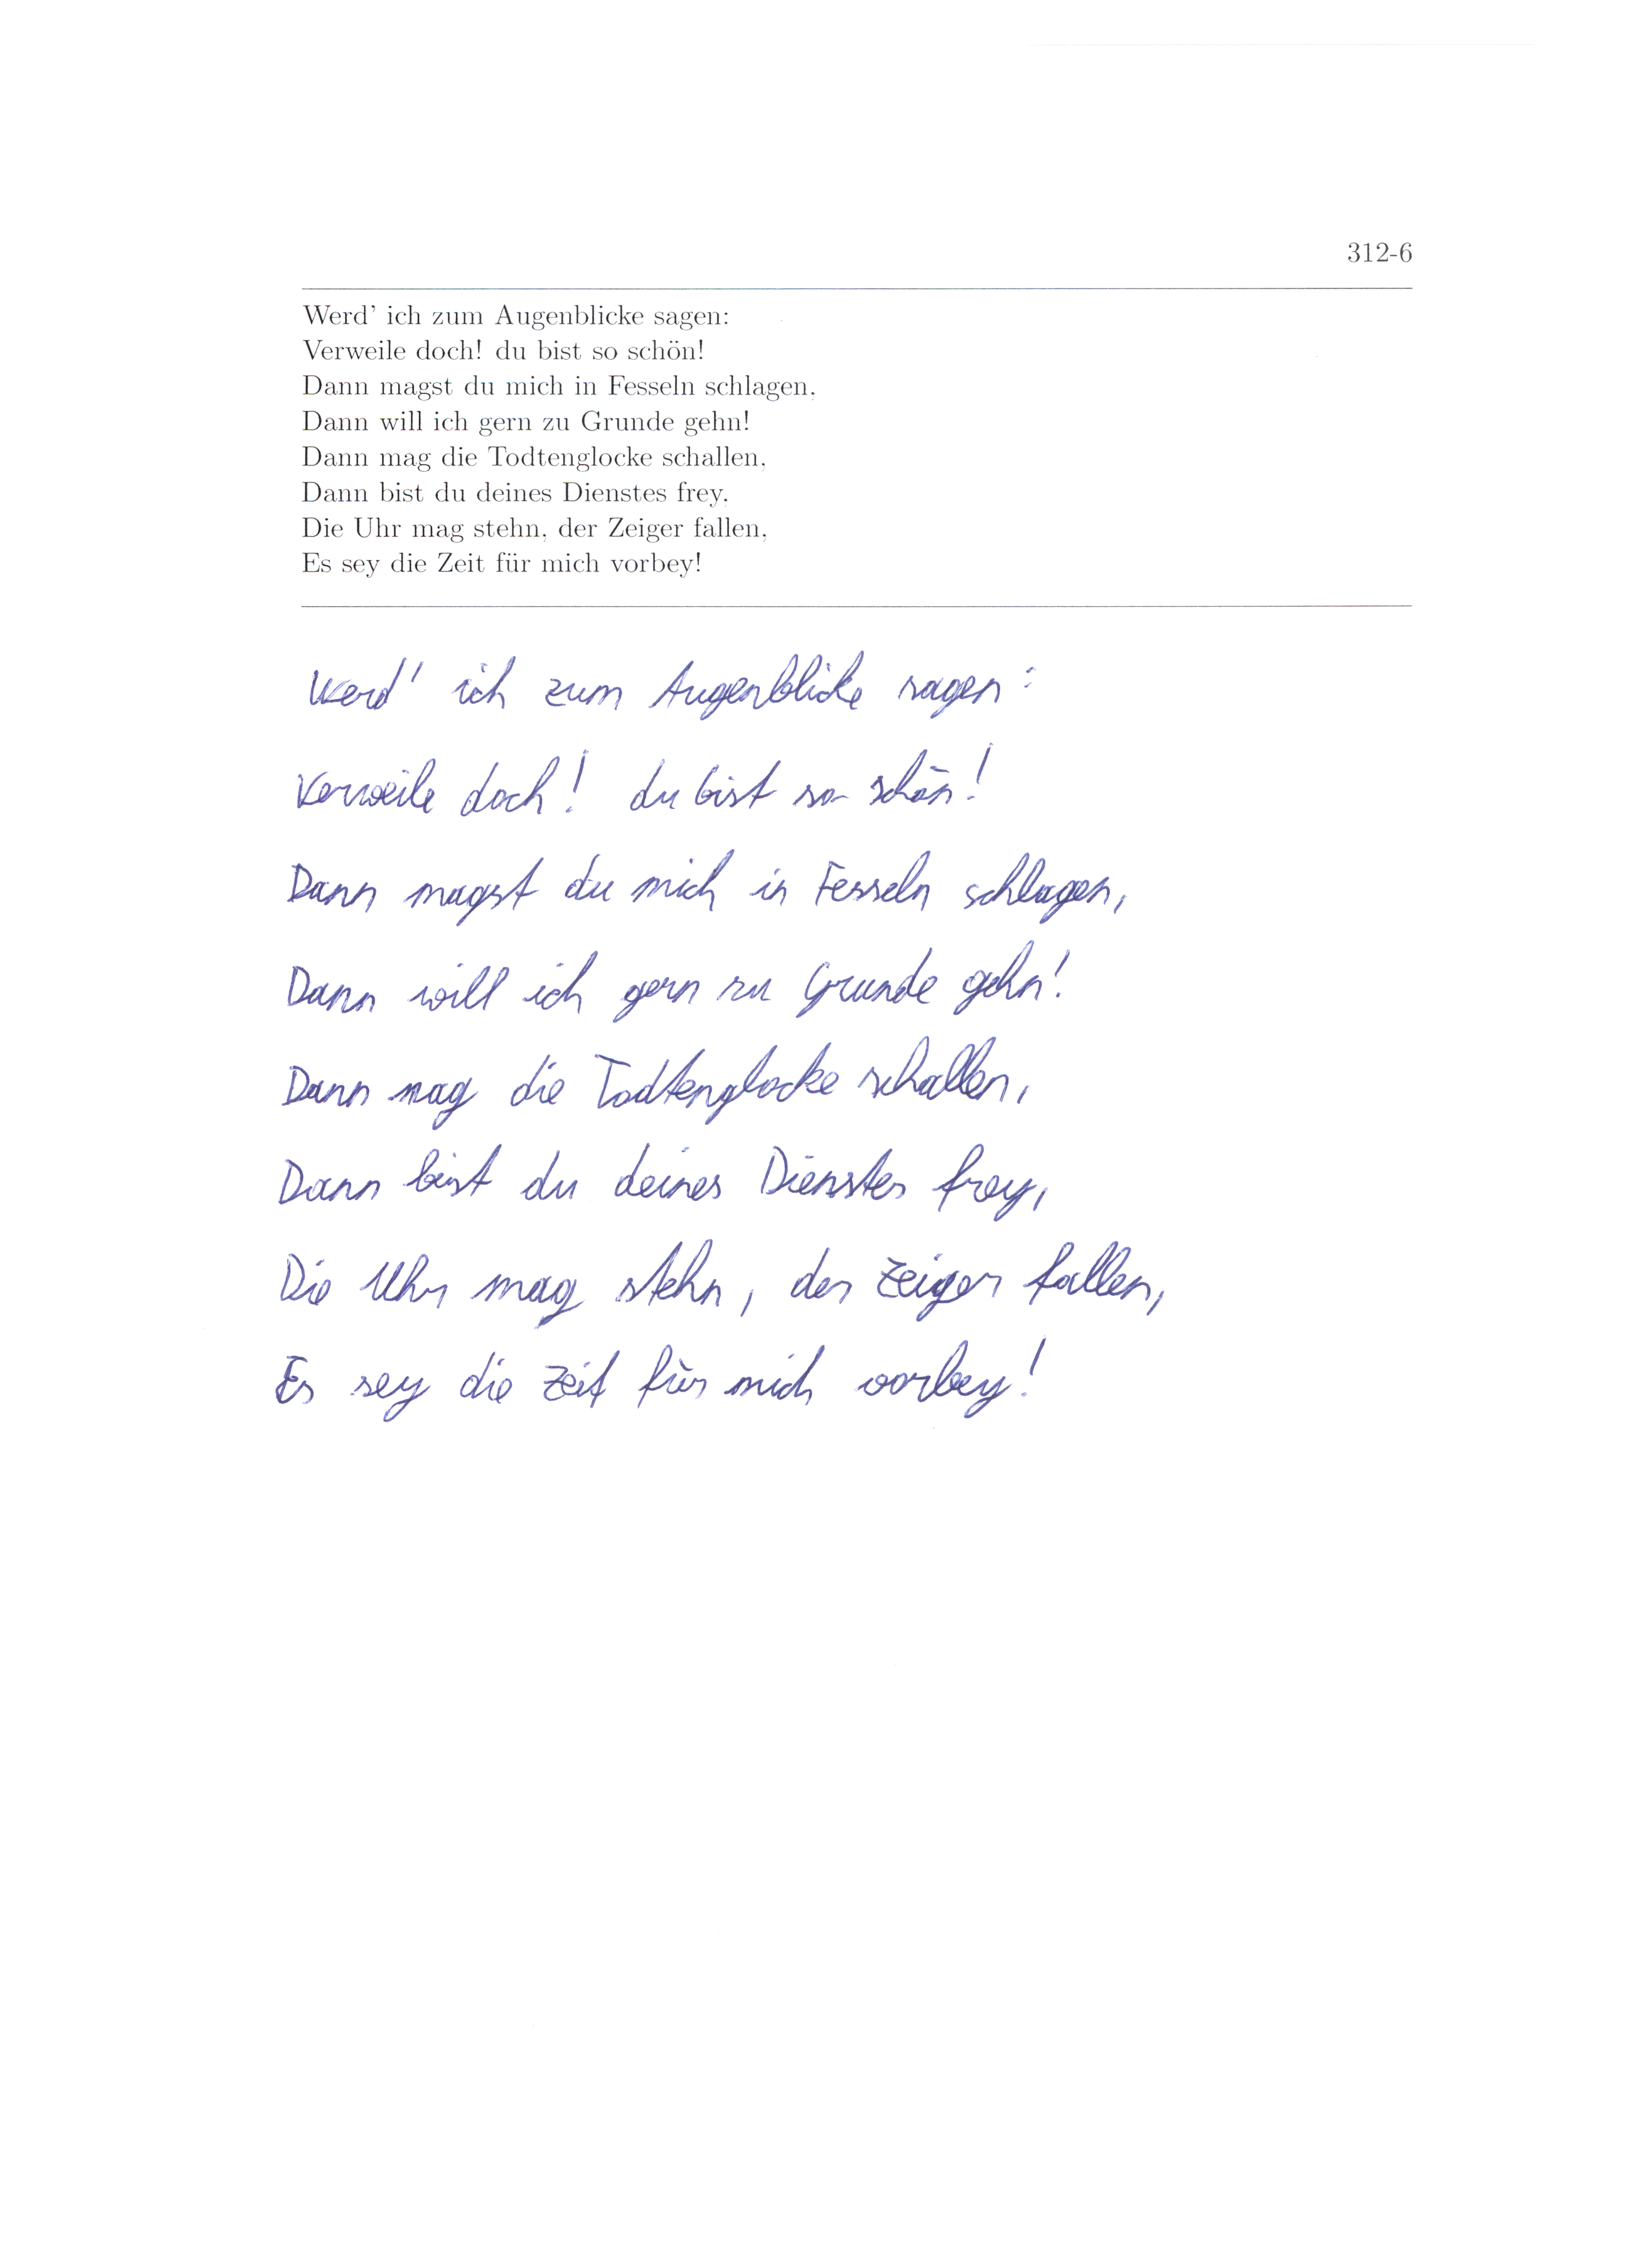 312-6
Werd' ich zum Augenblicke sagen:
Verweile doch! du bist so schön!
Dann magst du mich in Fesseln schlagen,
Dann will ich gern zu Grunde gehn!
Dann mag die Todtenglocke schallen,
Dann bist du deines Dienstes frey,
Die Uhr mag stehn, der Zeiger fallen,
Es sey die Zeit für mich vorbey!
Werd' ich zum Augenblicke sagen:
Verweile doch! du bist so schön!
Dann magst du mich in Fesseln schlagen,
Dann will ich gern zu Grunde gehn!
Dann mag die Todtenglocke schallen,
Dann bist du deines Dienstes frey,
Die Uhr mag stehn, der Zeiger fallen,
Es sey die Zeit für mich vorbey!